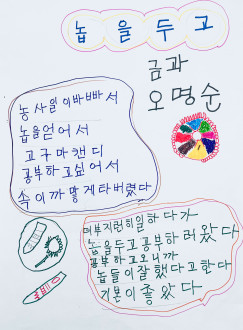 놉을두고
금과
오명순
농사일이바빠서
놉을얻어서
고구마캔디
공부하고싶어서
속이까맣게타버렸다
더부지런히일하다가
놉을두고공부하러왔다
공부하고오니까
놉들이잘했다고한다
기분이좋았다